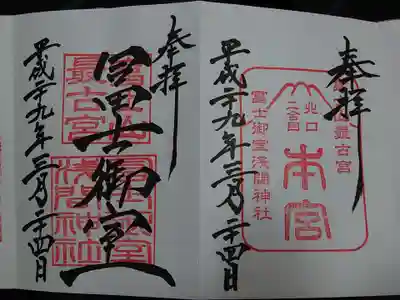 奉拝
最古宮
北口
二合目
本宮
冨士御室浅間神社
平成二十九年三月二十四日
奉拝
冨士御室
最古宮
浅間神社
平成二十九年三月二十四日